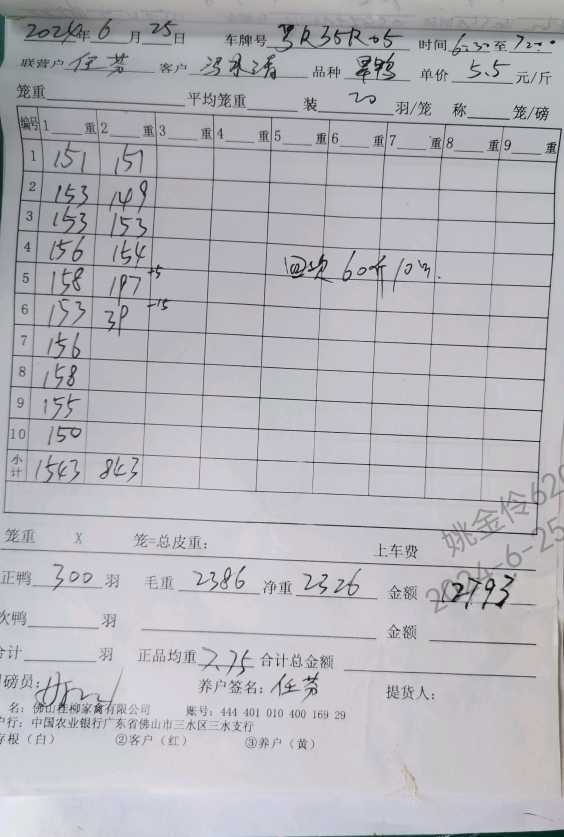 2024年6月25日 车牌号 粤R35R05 时间6:30至7:20
联营户 任芳 客户 品种 单价 5.5 元/斤
笼重 平均笼重 装 20 羽/笼 称 笼/磅
编号 1 重 2 重 3 重 4 重 5 重 6 重 7 重 8 重 9 重
1 151 151
2 153 149
3 153 153
4 156 154
5 158 197 +5
6 153 39 -15
7 156
8 158
9 155
10 150
小计 1543 843
60斤
笼重 X 笼=总皮重： 上车费
正鸭 300 羽 毛重 2386 净重 2326 金额 12793
次鸭 羽 金额
合计 羽 正品均重 7.75 合计总金额
磅员： 养户签名：任芳 提货人：
名：佛山桂柳家禽有限公司 账号：444 401 010 400 169 29
户行：中国农业银行广东省佛山市三水区三水支行
存根（白） ②客户（红） ③养户（黄）
姚金伶620
2024-6-25